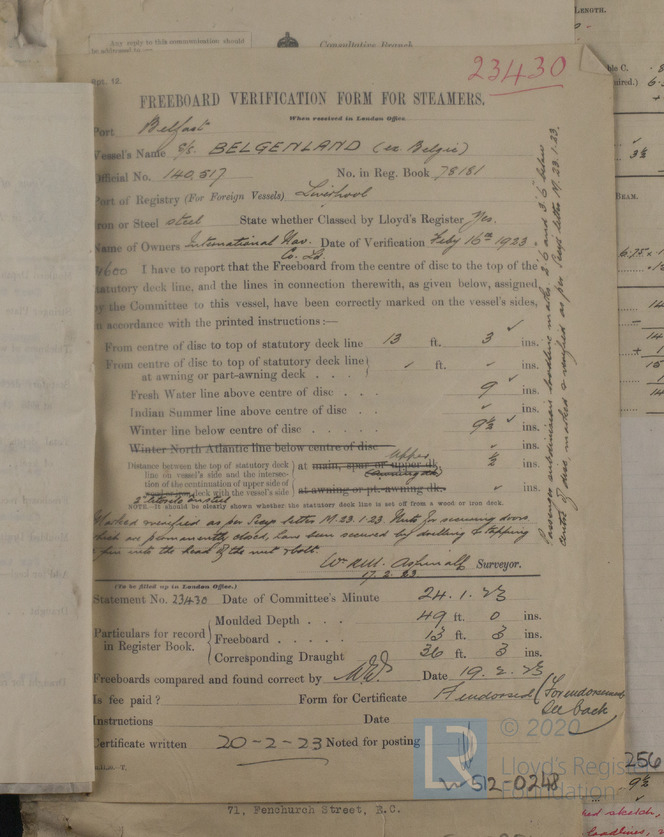 LENGTH.
Any reply to this communication should
be addressed to
Consultative Branch
23430
Rpt. 13.
FREEBOARD VERIFICATION FORM FOR STEAMERS.
When received in London Office
Port Belfast
Vessel's Name S/S. BELGENLAND (ex Belgic)
Official No. 140,517 No. in Reg. Book 78181
Port of Registry (For Foreign Vessels) Liverpool
Iron or Steel steel State whether Classed by Lloyd's Register Yes.
Name of Owners International Nav. Co. Ld. Date of Verification Feby 16th 1923
4600 I have to report that the Freeboard from the centre of disc to the top of the
statutory deck line, and the lines in connection therewith, as given below, assigned
by the Committee to this vessel, have been correctly marked on the vessel's sides,
in accordance with the printed instructions:—
From centre of disc to top of statutory deck line 13 ft. 3 ins.
From centre of disc to top of statutory deck line
at awning or part-awning deck . . . ft. ins.
Fresh Water line above centre of disc . . . 9 ins.
Indian Summer line above centre of disc . ins.
Winter line below centre of disc . . . . . 9½ ins.
Winter North Atlantic line below centre of disc ins.
Distance between the top of statutory deck
line on vessel's side and the intersec-
tion of the continuation of upper side of
deck with the vessel's side
at main, spar or upper dk. Upper ½ ins.
(Awning dk)
at awning or pt.-awning dk. ins.
NOTE.—It should be clearly shewn whether the statutory deck line is set off from a wood or iron deck.
Marked & verified as per Secys letter M. 23.1.23. Nuts for securing doors
which are permanently closed, have been secured by drilling & tapping
a pin into the head of the nut & bolt.
Wm Aspinall Surveyor.
17.2.23
Passenger subdivision loadline marks 2'6" and 3'6" below
centre of disc, marked & verified as per Secys letter M. 23.1.23.
(To be filled up in London Office.)
Statement No. 23430 Date of Committee's Minute 24.1.23
Particulars for record
in Register Book.
Moulded Depth . . . 49 ft. 0 ins.
Freeboard . . . . . 13 ft. 3 ins.
Corresponding Draught 36 ft. 3 ins.
Freeboards compared and found correct by Date 19.2.23
Is fee paid? Form for Certificate A endorsed (For endorsement
see back
Instructions Date
Certificate written 20-2-23 Noted for posting
© 2020
LR
Lloyd's Register
Foundation
W512-0248
71, Fenchurch Street, E.C.
BEAM.
256
9½